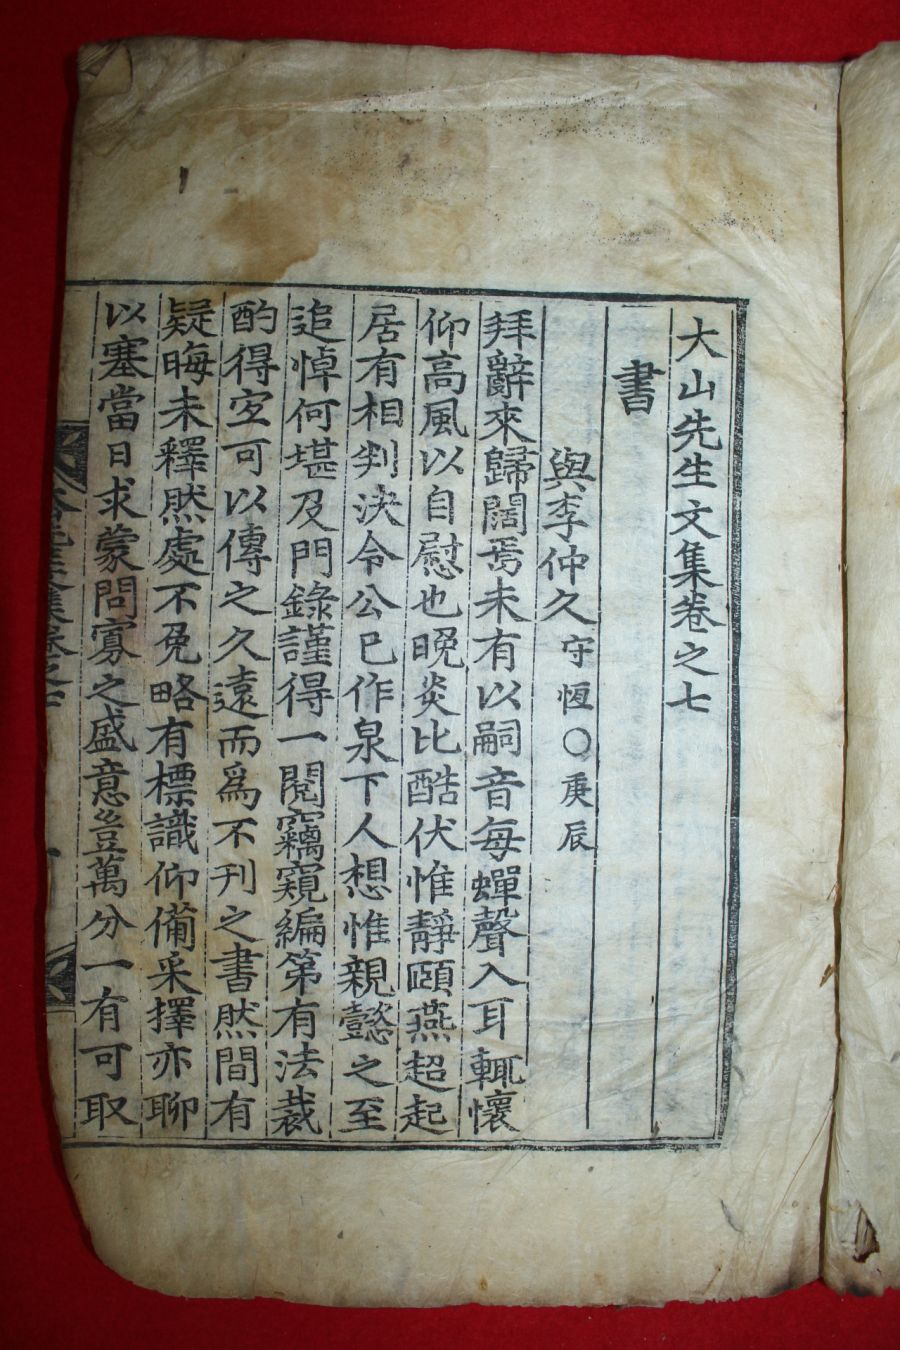 大山先生文集卷之七
書
與李仲久守恆○庚辰
拜辭來歸闊焉未有以嗣音每蟬聲入耳輒懷
仰高風以自慰也晚炎比酷伏惟靜頤燕超起
居有相判決令公已作泉下人想惟親懿之至
追悼何堪及門錄謹得一閱竊窺編第有法裁
酌得宜可以傳之久遠而爲不刊之書然間有
疑晦未釋然處不免略有標識仰備采擇亦聊
以塞當日求蒙問寡之盛意豈萬分一有可取